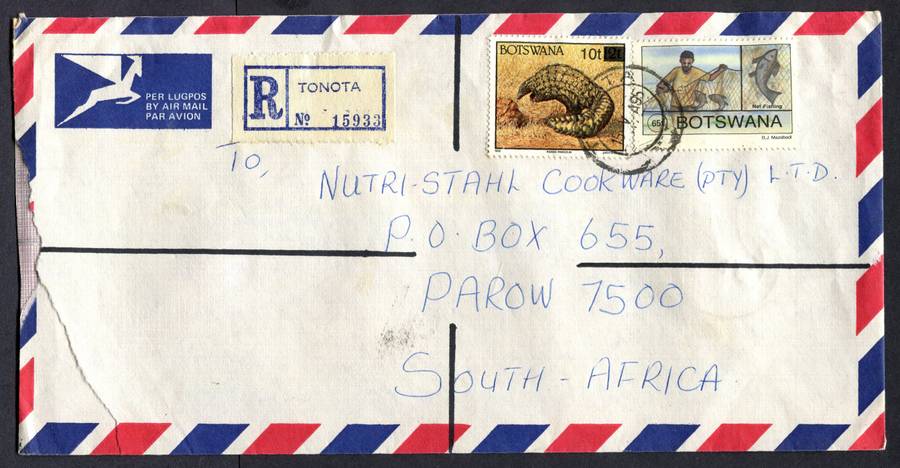 PER LUGPOS
BY AIR MAIL
PAR AVION
R
TONOTA
Nº 15933
BOTSWANA
10t 12t
65t
Net Fishing
BOTSWANA
To,
NUTRI-STAHL COOKWARE (PTY) L.T.D.
P.O. BOX 655,
PAROW 7500
SOUTH-AFRICA